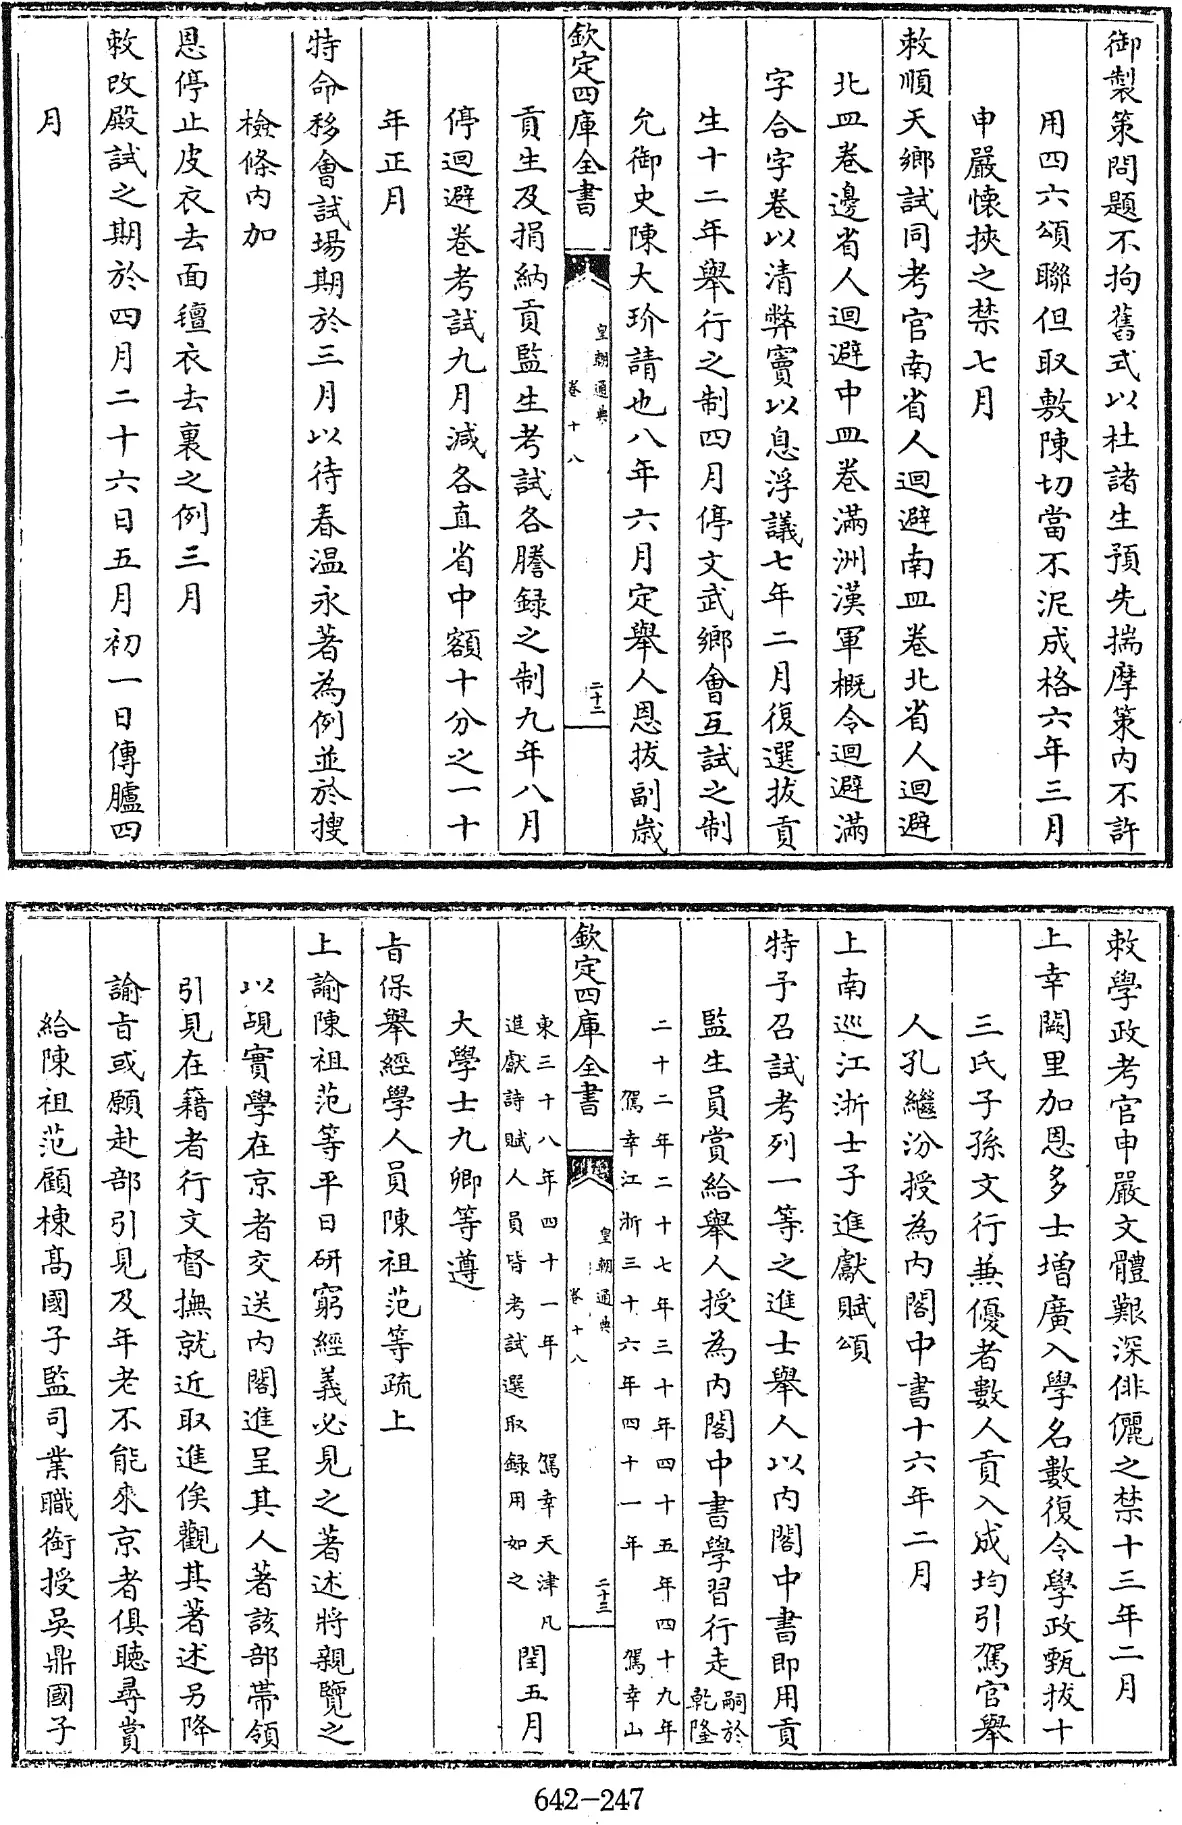 御製策問題不拘舊式以杜諸生預先揣摩策内不許
用四六頌聯但取敷陳切當不泥成格六年三月
申嚴懐挾之禁七月
敕順天鄉試同考官南省人迴避南皿卷北省人迴避
北皿卷邊省人迴避中皿卷滿洲漢軍概令迴避滿
字合字卷以清弊竇以息浮議七年二月復選拔貢
生十二年舉行之制四月停文武鄉會互試之制
允御史陳大玠請也八年六月定舉人恩拔副歲
欽定四庫全書
皇朝通典
卷十八
二十二
貢生及捐納貢監生考試各謄録之制九年八月
停迴避卷考試九月減各直省中額十分之一十
年正月
特命移會試場期於三月以待春温永著為例並於搜
檢條内加
恩停止皮衣去面氊衣去裏之例三月
敕改殿試之期於四月二十六日五月初一日傳臚四
月
敕學政考官申嚴文體艱深俳儷之禁十三年二月
上幸闕里加恩多士増廣入學名數復令學政甄拔十
三氏子孫文行兼優者數人貢入成均引駕官舉
人孔繼汾授為内閣中書十六年二月
上南巡江浙士子進獻賦頌
特予召試考列一等之進士舉人以内閣中書即用貢
監生員賞給舉人授為内閣中書學習行走嗣於乾隆
二十二年二十七年三十年四十五年四十九年
駕幸江浙三十六年四十一年 駕幸山
東三十八年四十一年 駕幸天津凡
進獻詩賦人員皆考試選取録用如之閏五月
欽定四庫全書
皇朝通典
卷十八
二十三
大學士九卿等遵
旨保舉經學人員陳祖范等疏上
上諭陳祖范等平日研窮經義必見之著述將親覽之
以覘實學在京者交送内閣進呈其人著該部帶領
引見在籍者行文督撫就近取進俟觀其著述另降
諭旨或願赴部引見及年老不能來京者俱聽尋賞
給陳祖范顧棟髙國子監司業職銜授吳鼎國子
642-247